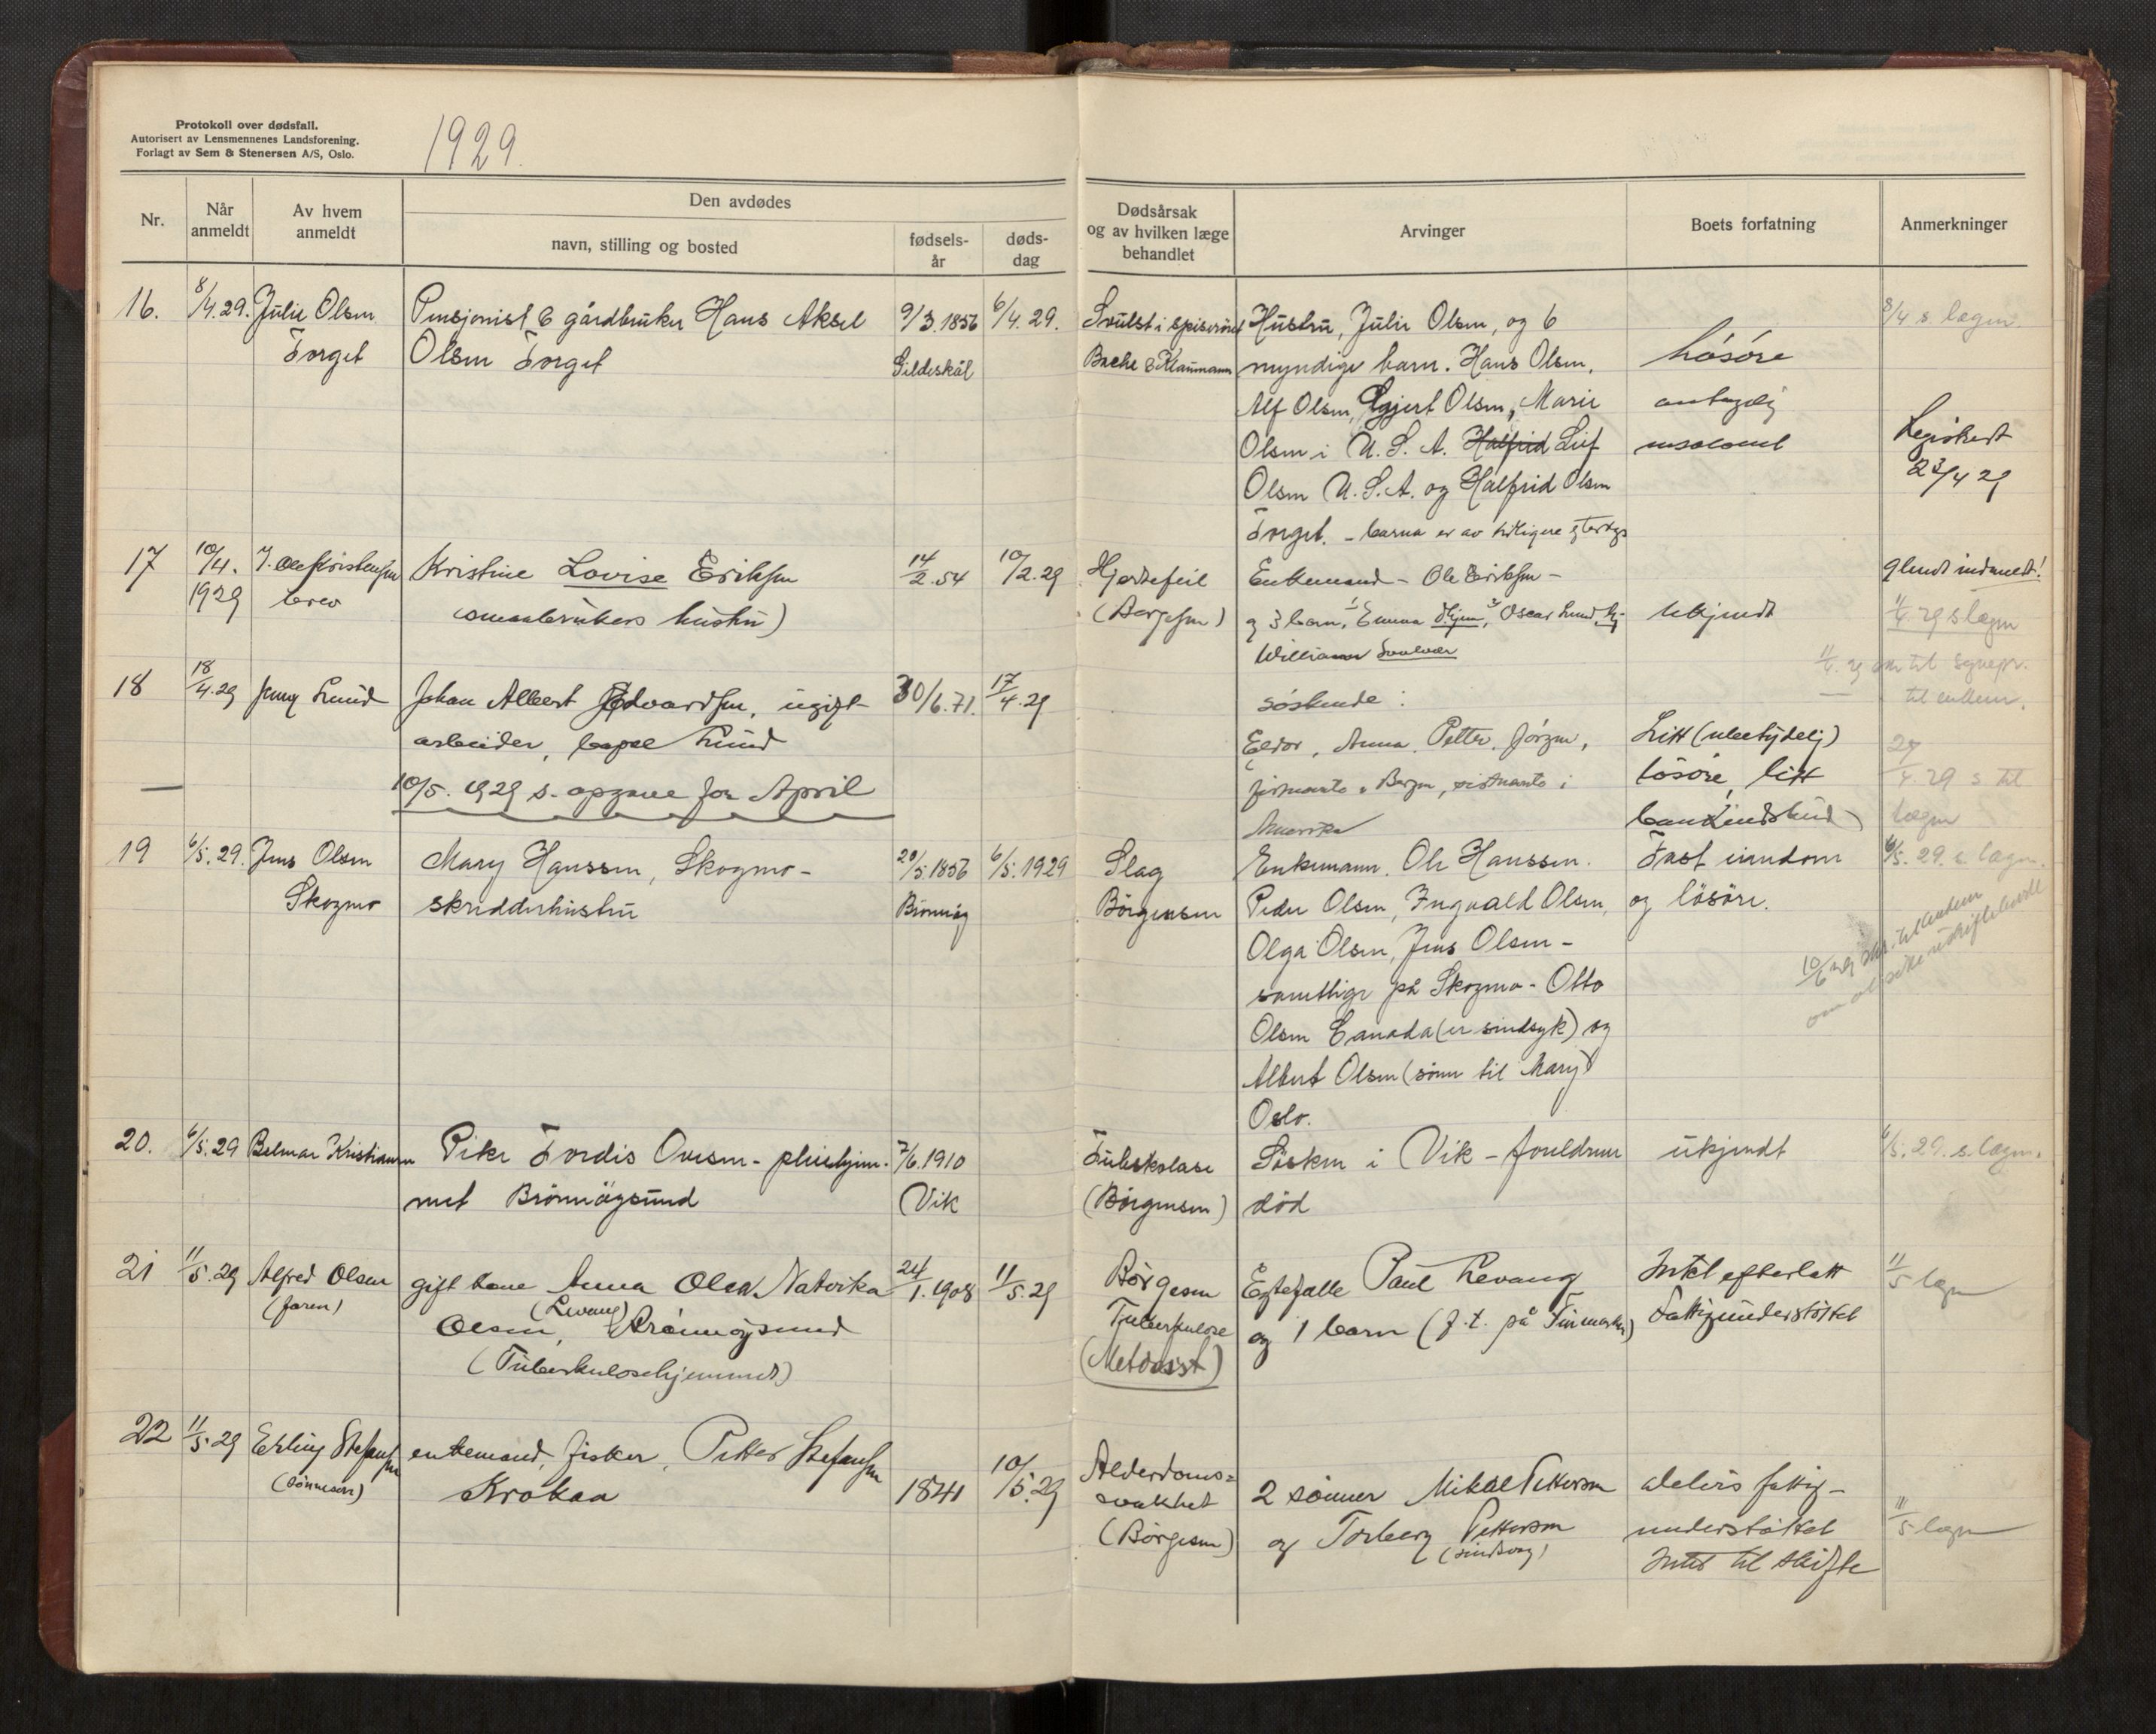 Protokoll over dødsfall.
Autorisert av Lensmennenes Landsforening.
Forlagt av Sem & Stenersen A/S, Oslo.
1929.
Nr.
Når
anmeldt
Av hvem
anmeldt
Den avdødes
navn, stilling og bosted
fødsels-
år
døds-
dag
Dødsårsak
og av hvilken læge
behandlet
Arvinger
Boets forfatning
Anmerkninger
16.
8/4.29.
Julie Olsen
Torget
Pensjonist & gårdbruker Hans Aksel
Olsen Torget
9/3.1856
Gildeskål
6/4.29.
Svulst i spiserøret
Bache &
Hustru, Julie Olsen, og 6
myndige barn. Hans Olsen,
Alf Olsen, Egjert Olsen, Marie
Olsen i U.S.A. Halfrid Leif
Olsen U.S.A. og Halfrid Olsen
Torget. - barna er av tidligere
løsøre
antagelig
insolvent
8/4 s lægen
23/4 29
17
10/4.
1929
brev
Kristine Lovise Eriksen
(smaabrukers hustru)
14/2.54
10/2.29
Hjertefeil
(Børgesen)
Enkemand - Ole Eriksen -
og 3 barn, 1 Emma Hjem, 2 Oscar Lund,
William Svolvær
Ukjendt
glemt indmeldt!
29 s lægen
18
18/4.29
Jenny Lund
Johan Albert Edvardsen, ugift
arbeider, Lund
30/6.71.
17/4.29
søskende:
Eldor, Anna, Petter, Jørgen,
Amerika
Litt (ubetydelig)
løsøre, litt
bankindskud
27/4.29 s til
lægen
10/5. 1929 s. opgave for April
19
6/5.29.
Jens Olsen
Skogmo
Mary Hanssen, Skogmo -
skredderhustru
20/5.1856
Brønnøy
6/5.1929
Slag
Børgensen
Enkemann. Ole Hanssen.
Peder Olsen, Ingvald Olsen,
Olga Olsen, Jens Olsen -
samtlige på Skogmo - Otto
Olsen Canada (er sindsyk) og
Albert Olsen (sønn til Mary)
Oslo.
Fast eiendom
og løsøre.
6/5.29. s. lægen.
20.
6/5.29
Belmar Kristiansen
Pike Tordis Ovesen - pleiehjem-
met Brønnøysund
7/6.1910
(Vik
Tuberkolose
(Børgensen)
Søsken i Vik - foreldrene
död
ukjendt
6/5.29. s. lægen.
21
11/5.29
Alfred Olsen
(faren)
gift kone Anna Olea Natvika
(Levang)
Olsen, Brønnøysund
(Tuberkulosehjemmet)
24/1.1908
11/5.29
Børgesen
Tuberkulose
Egtefælle Paul Levang
og 1 barn (f.t. på Finmarken)
Intet efterlatt
Fattigunderstøttet
11/5 lægen
22
11/5.29
Erling Stefansen
(sønnesøn)
enkemand, fisker, Petter Stefansen
Krokaa
1841
10/5.29
Alderdoms-
svakhet
(Børgesen)
2 sønner Mikal Pettersen
og Torberg Pettersen
delvis fattig-
understøttet
Intet til skifte
11/5 lægen